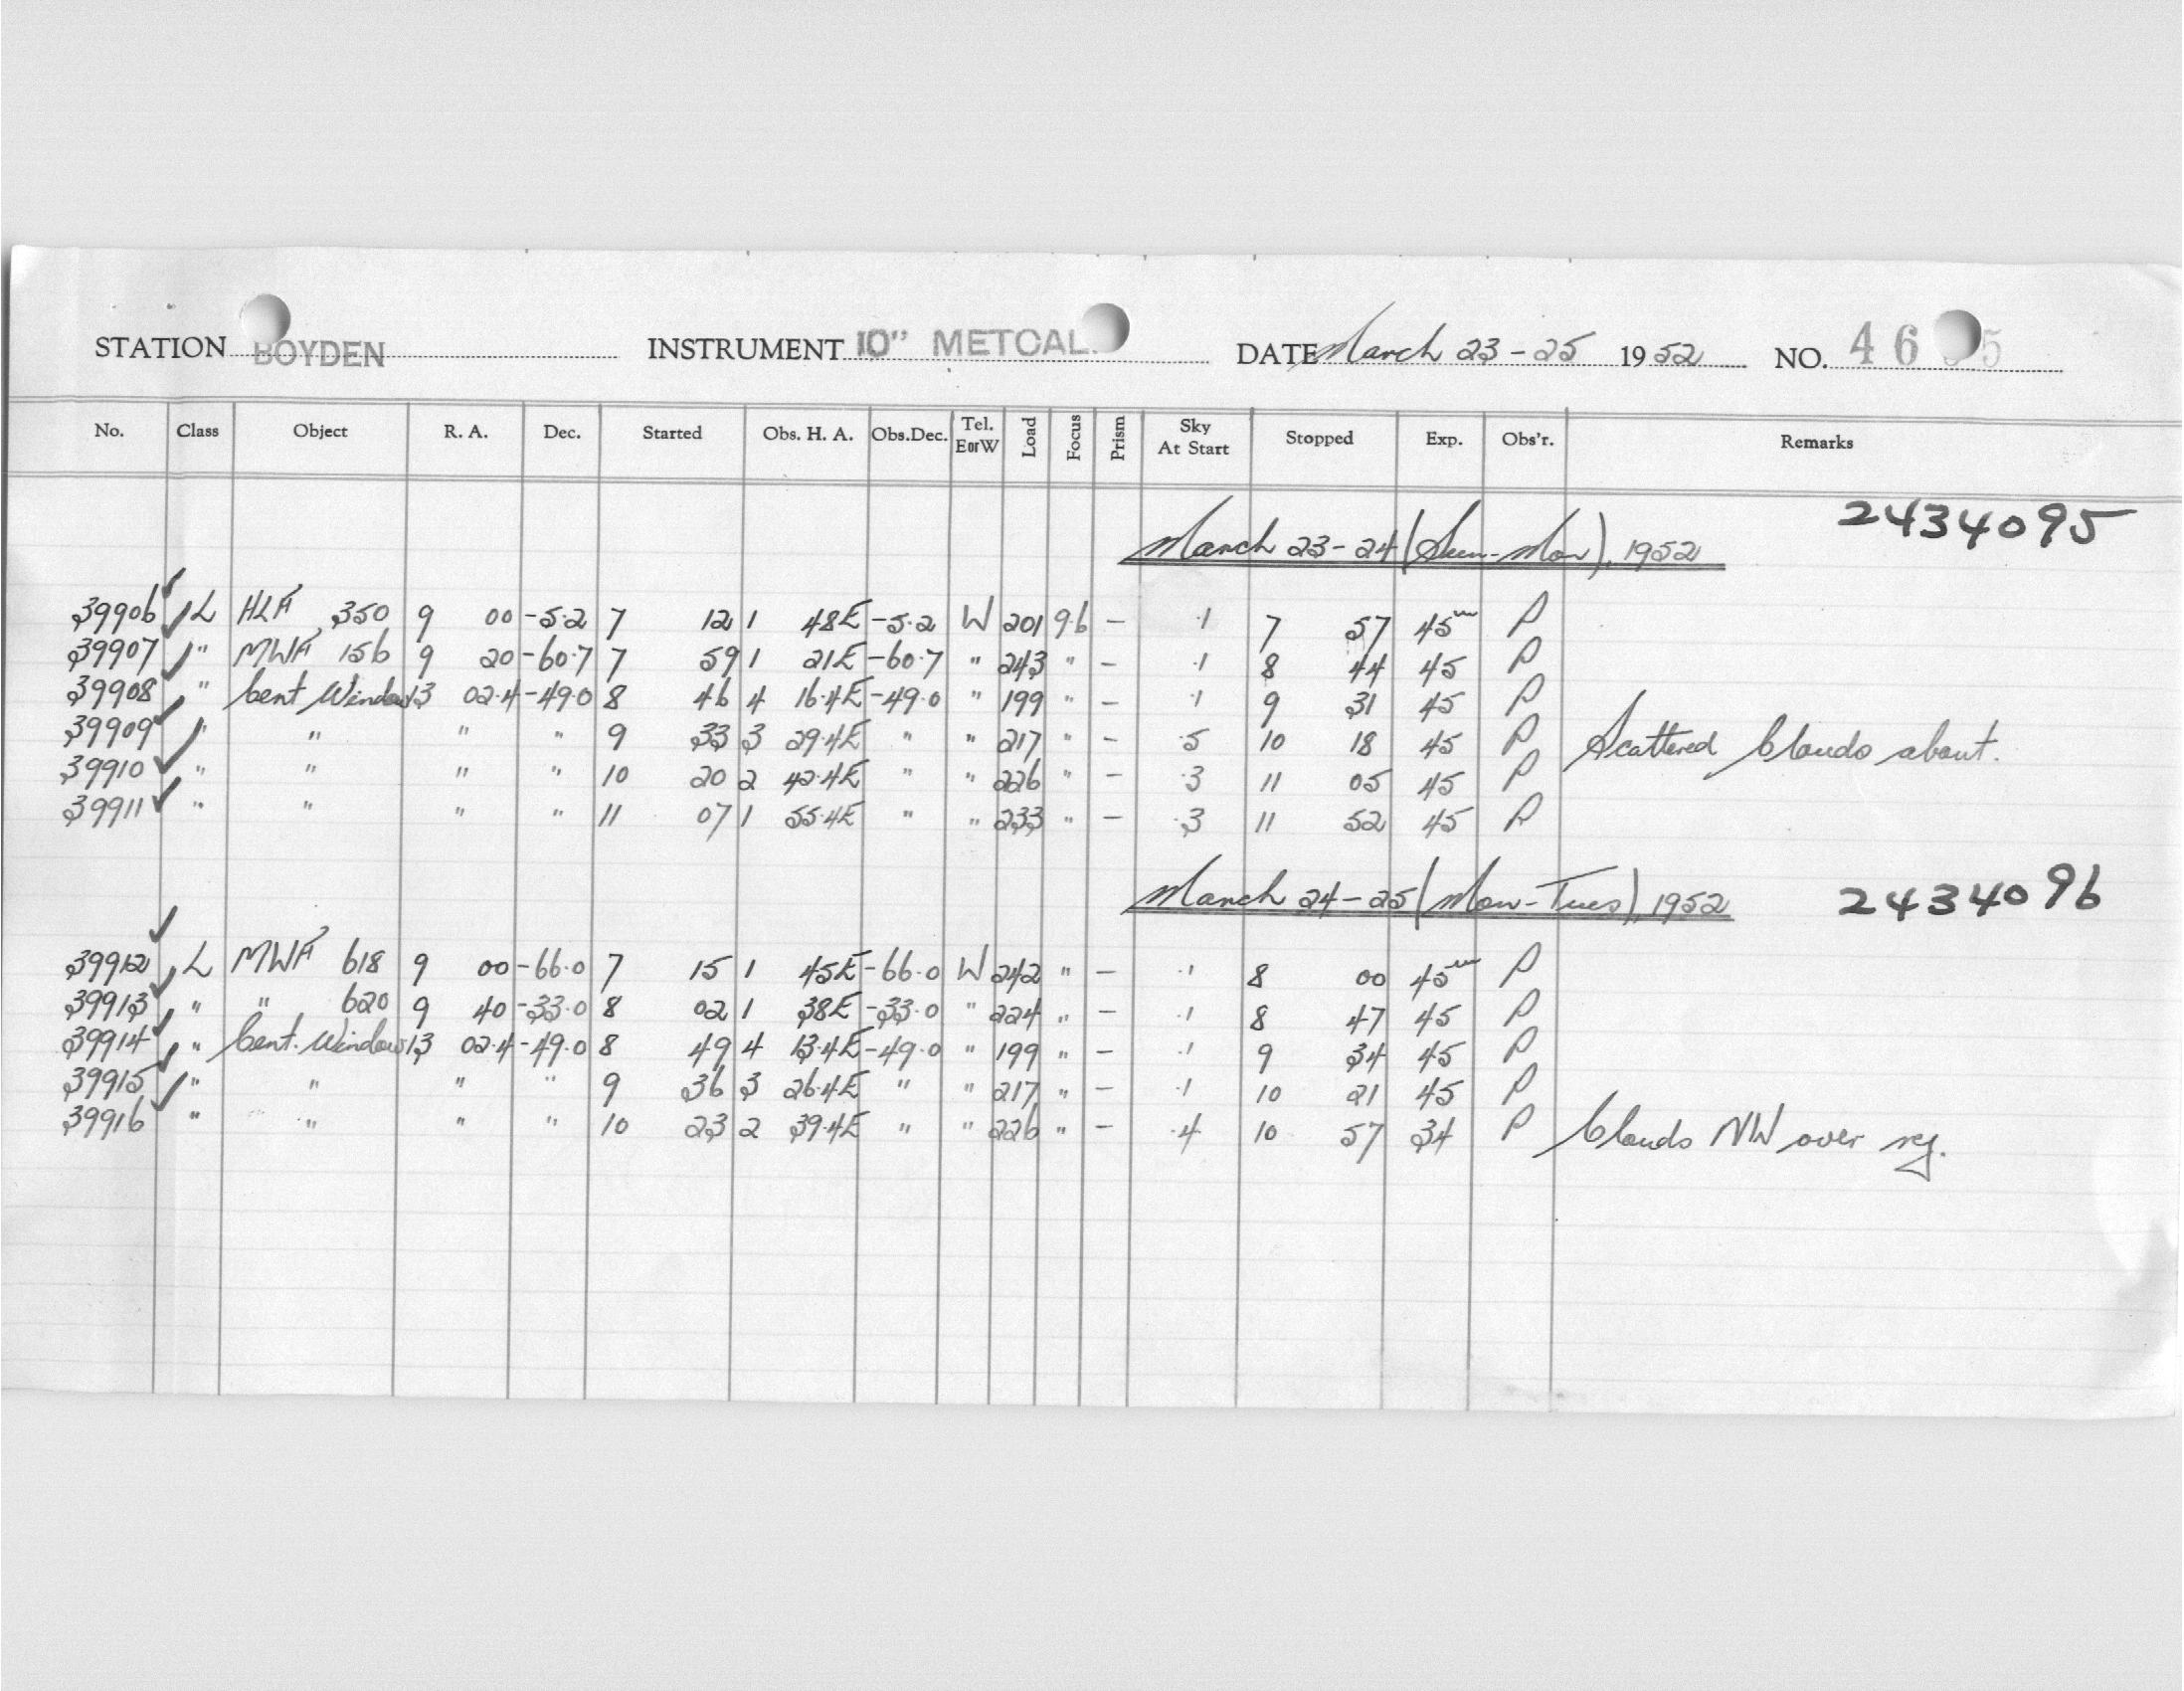 STATION BOYDEN INSTRUMENT 10" METCAL DATE March 23-25 1952 NO. 46 5
No. Class Object R. A. Dec. Started Obs. H. A. Obs.Dec. Tel. EorW Load Focus Prism Sky At Start Stopped Exp. Obs'r. Remarks
2434095
March 23-24 (Sun-Mon), 1952
39906 ✓ L HLF 350 9 00 -5.2 7 12 1 48E -5.2 W 201 9.6 - .1 7 57 45m P
39907 ✓ " MWF 156 9 20 -60.7 7 59 1 21E -60.7 " 243 " - .1 8 44 45 P
39908 ✓ " Cent Window 13 02.4 -49.0 8 46 4 16.4E -49.0 " 199 " - .1 9 31 45 P
39909 ✓ " " " " 9 33 3 29.4E " " 217 " - .5 10 18 45 P Scattered Clouds about.
39910 ✓ " " " " 10 20 2 42.4E " " 226 " - .3 11 05 45 P
39911 ✓ " " " " 11 07 1 55.4E " " 233 " - .3 11 52 45 P
March 24-25 (Mon-Tues), 1952 2434096
39912 ✓ L MWF 618 9 00 -66.0 7 15 1 45E -66.0 W 242 " - .1 8 00 45m P
39913 ✓ " " 620 9 40 -33.0 8 02 1 38E -33.0 " 224 " - .1 8 47 45 P
39914 ✓ " Cent. Window 13 02.4 -49.0 8 49 4 13.4E -49.0 " 199 " - .1 9 34 45 P
39915 ✓ " " " " 9 36 3 26.4E " " 217 " - .1 10 21 45 P
39916 ✓ " " " " 10 23 2 39.4E " " 226 " - .4 10 57 34 P Clouds NW over reg.